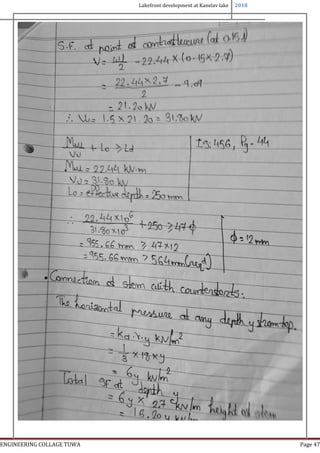 Lakefront development at Kanelav lake 2018
S.F. at point of contraflexure (at 0.15 l)
V = wl/2 - 22.44 × (0.15 × 2.7)
= 22.44 × 2.7 / 2 - 9.09
= 21.20 kN
∴ Vu = 1.5 × 21.20 = 31.80 kN
Mu1/Vu + Lo ≥ Ld
I.S. 456, Pg - 44
Mu1 = 22.44 kN.m
Vu = 31.80 kN
Lo = effective depth = 250 mm
∴ 22.44 × 10⁶ / 31.80 × 10³ + 250 ≥ 47 ϕ
ϕ = 12 mm
= 955.66 mm ≥ 47 × 12
= 955.66 mm > 564 mm (reqd)
• Connection of stem with counterforts:
The horizontal pressure at any depth y from top.
= Ka . r . y kN/m²
= 1/3 × 18 × y
= 6y kN/m²
Total SF at depth y
= 6y × 2.7 kN/m height of stem
= 16.20 y kN/m
ENGINEERING COLLAGE TUWA Page 47